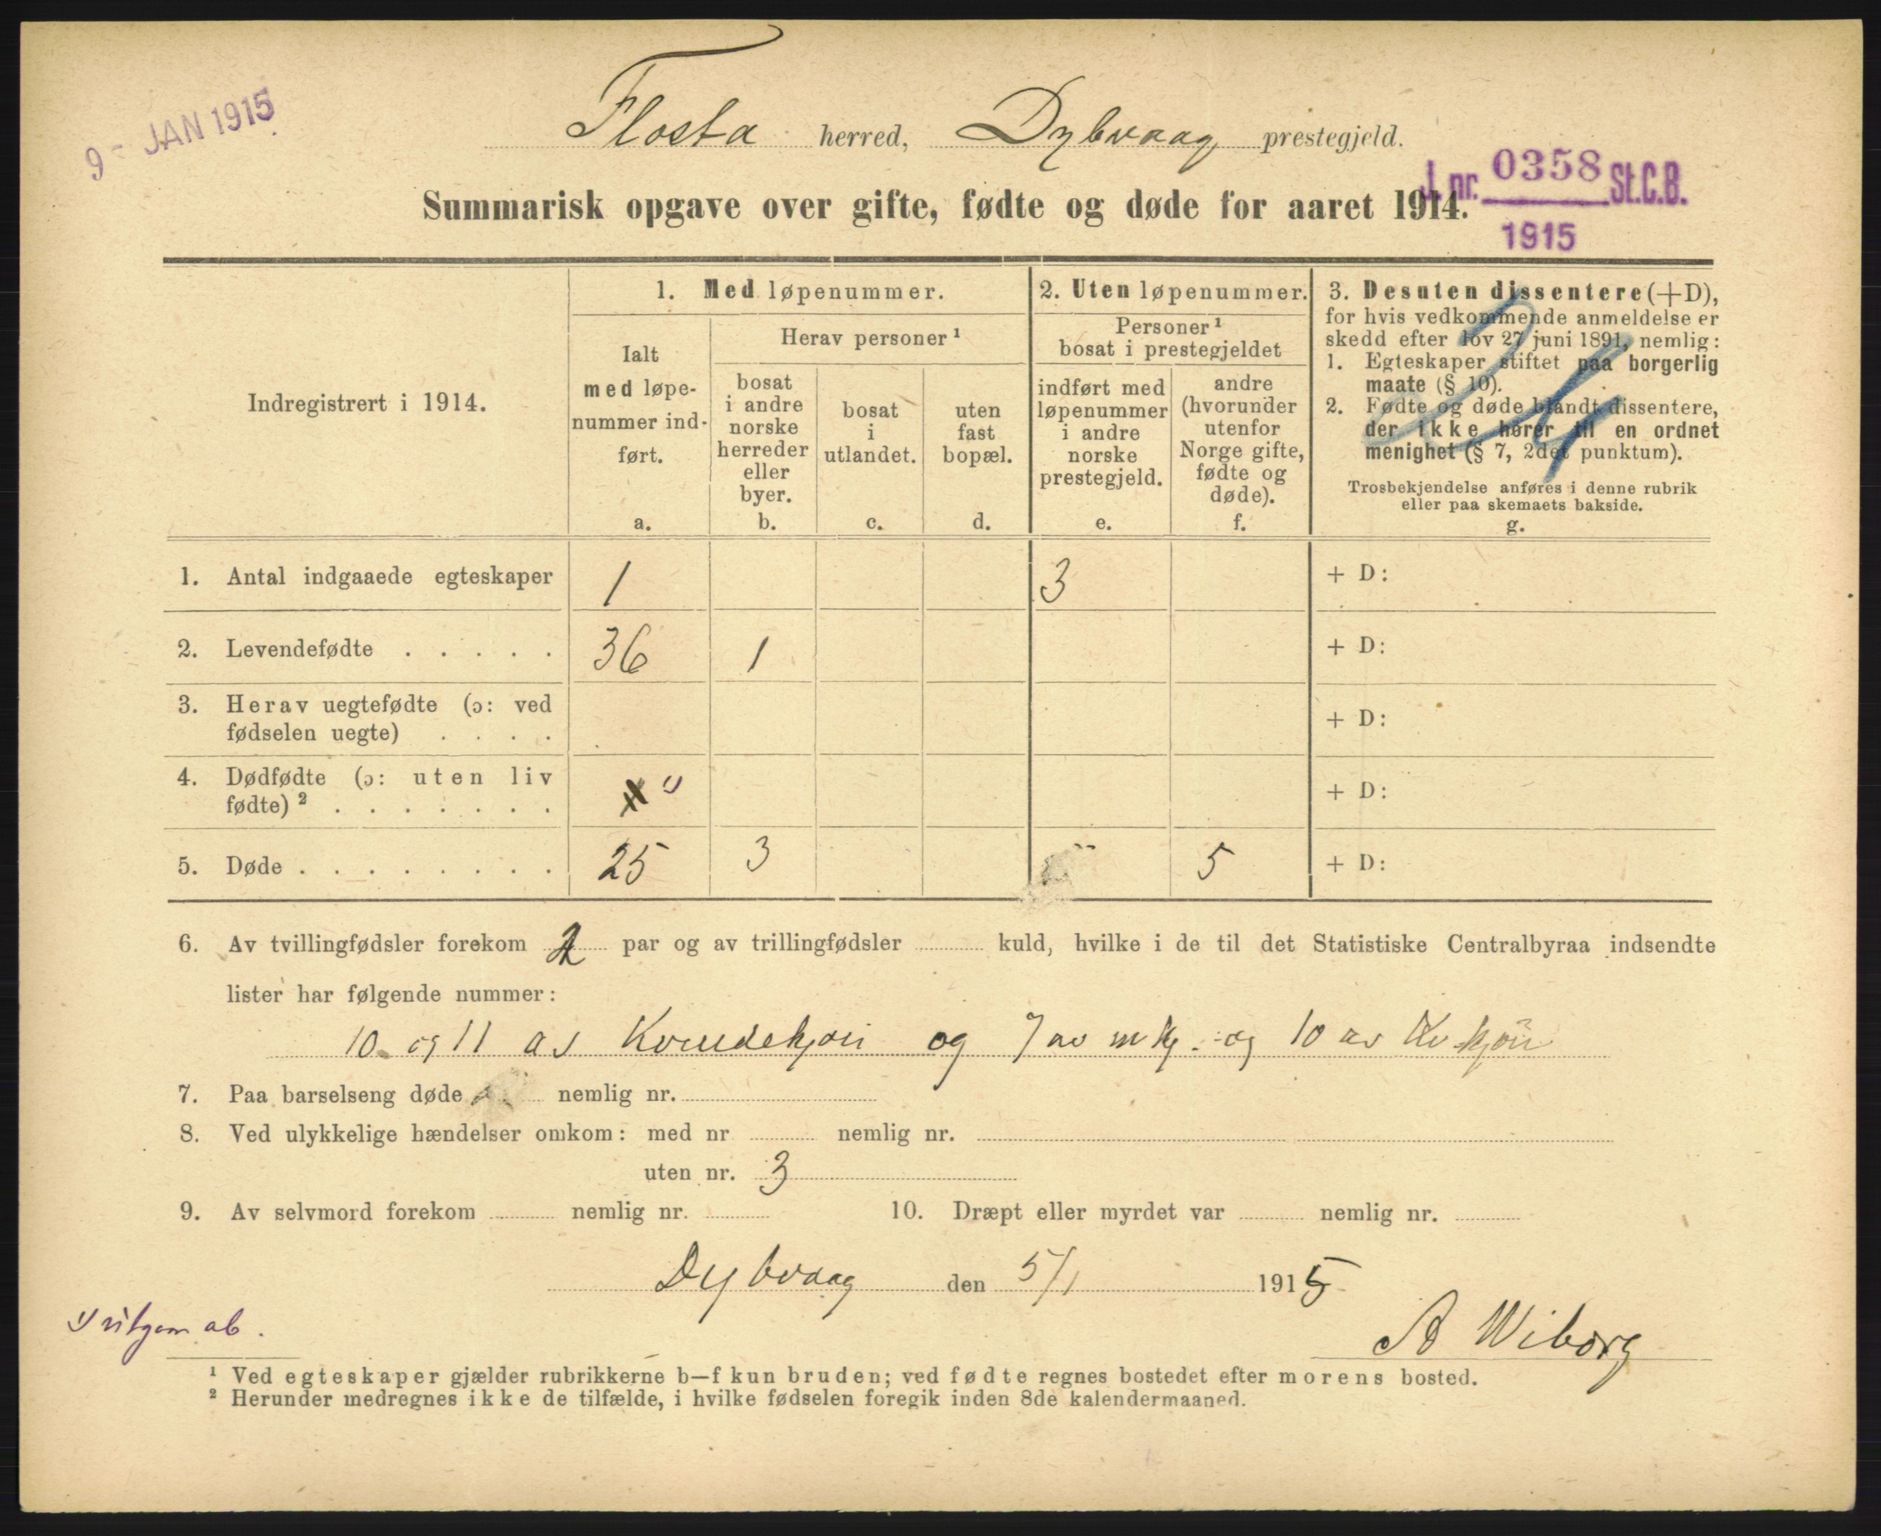 9 - JAN 1915
Flosta herred, Dybvaag prestegjeld.
J. nr. 0358 St.C.B.
1915
Summarisk opgave over gifte, fødte og døde for aaret 1914.
Indregistrert i 1914.
1. Med løpenummer.
Ialt
med løpe-
nummer ind-
ført.
a.
Herav personer ¹
bosat
i andre
norske
herreder
eller
byer.
b.
bosat
i
utlandet.
c.
uten
fast
bopæl.
d.
2. Uten løpenummer.
Personer ¹
bosat i prestegjeldet
indført med
løpenummer
i andre
norske
prestegjeld.
e.
andre
(hvorunder
utenfor
Norge gifte,
fødte og
døde).
f.
3. Desuten dissentere (+D),
for hvis vedkommende anmeldelse er
skedd efter lov 27 juni 1891, nemlig:
1. Egteskaper stiftet paa borgerlig
maate (§ 10).
2. Fødte og døde blandt dissentere,
der ikke hører til en ordnet
menighet (§ 7, 2det punktum).
Trosbekjendelse anføres i denne rubrik
eller paa skemaets bakside.
g.
1. Antal indgaaede egteskaper 1 3 + D:
2. Levendefødte . . . . . 36 1 + D:
3. Herav uegtefødte (ɔ: ved
fødselen uegte) . . . . + D:
4. Dødfødte (ɔ: uten liv
fødte) ² . . . . . . . + D:
5. Døde . . . . . . . . 25 3 5 + D:
6. Av tvillingfødsler forekom 2 par og av trillingfødsler kuld, hvilke i de til det Statistiske Centralbyraa indsendte
lister har følgende nummer:
10 og 11 av Kvindekjøn og 7 av mkj. og 10 av Kv.kjön
7. Paa barselseng døde nemlig nr.
8. Ved ulykkelige hændelser omkom: med nr nemlig nr.
uten nr. 3
9. Av selvmord forekom nemlig nr. 10. Dræpt eller myrdet var nemlig nr.
Dybvaag den 5/1 1915
A Wiborg
¹ Ved egteskaper gjælder rubrikkerne b—f kun bruden; ved fødte regnes bostedet efter morens bosted.
² Herunder medregnes ikke de tilfælde, i hvilke fødselen foregik inden 8de kalendermaaned.